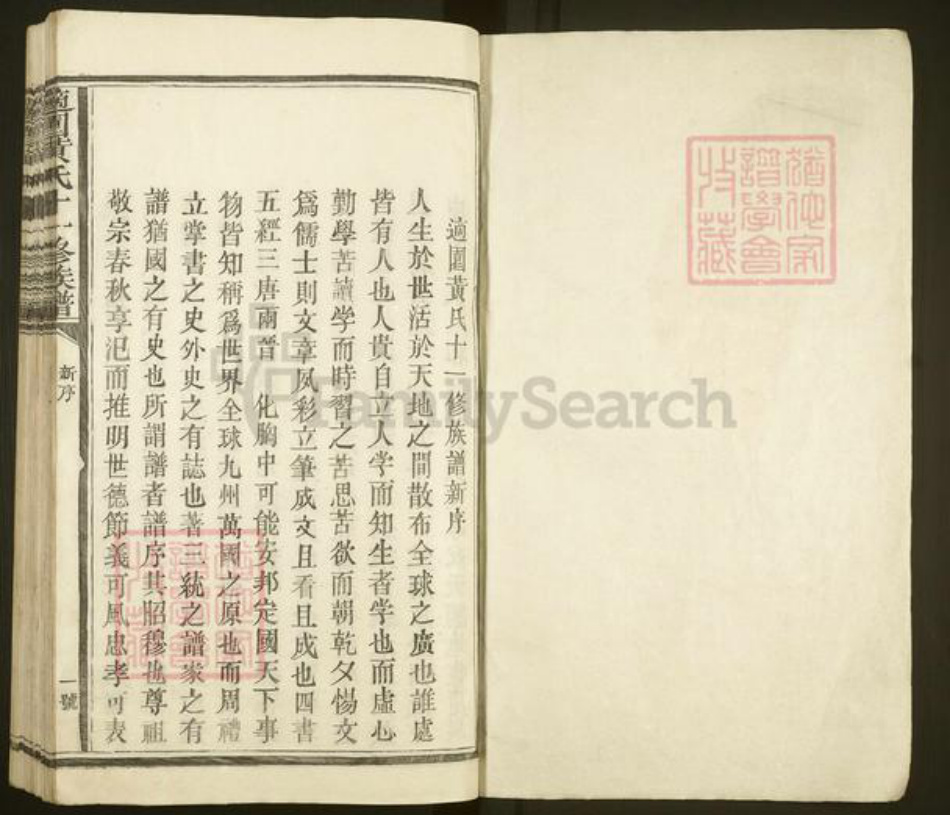 猶他家
譜學會
收藏
適園黃氏十一修族譜新序
人生於世活於天地之間散布全球之廣也誰處
皆有人也人貴自立人学而知生者学也而虛心
勤學苦讀学而時習之苦思苦欲而朝乾夕惕文
爲儒士則文章风彩立筆成文且看且成也四書
五經三唐兩晉 化胸中可能安邦定國天下事
物皆知稱爲世界全球九州萬國之原也而周禮
立掌書之史外史之有誌也著三統之譜家之有
譜猶國之有史也所謂譜者譜序其昭穆也尊祖
敬宗春秋享汜而推明世德節義可風忠孝可表
適園黃氏十一修族譜
新序
一號
FamilySearch